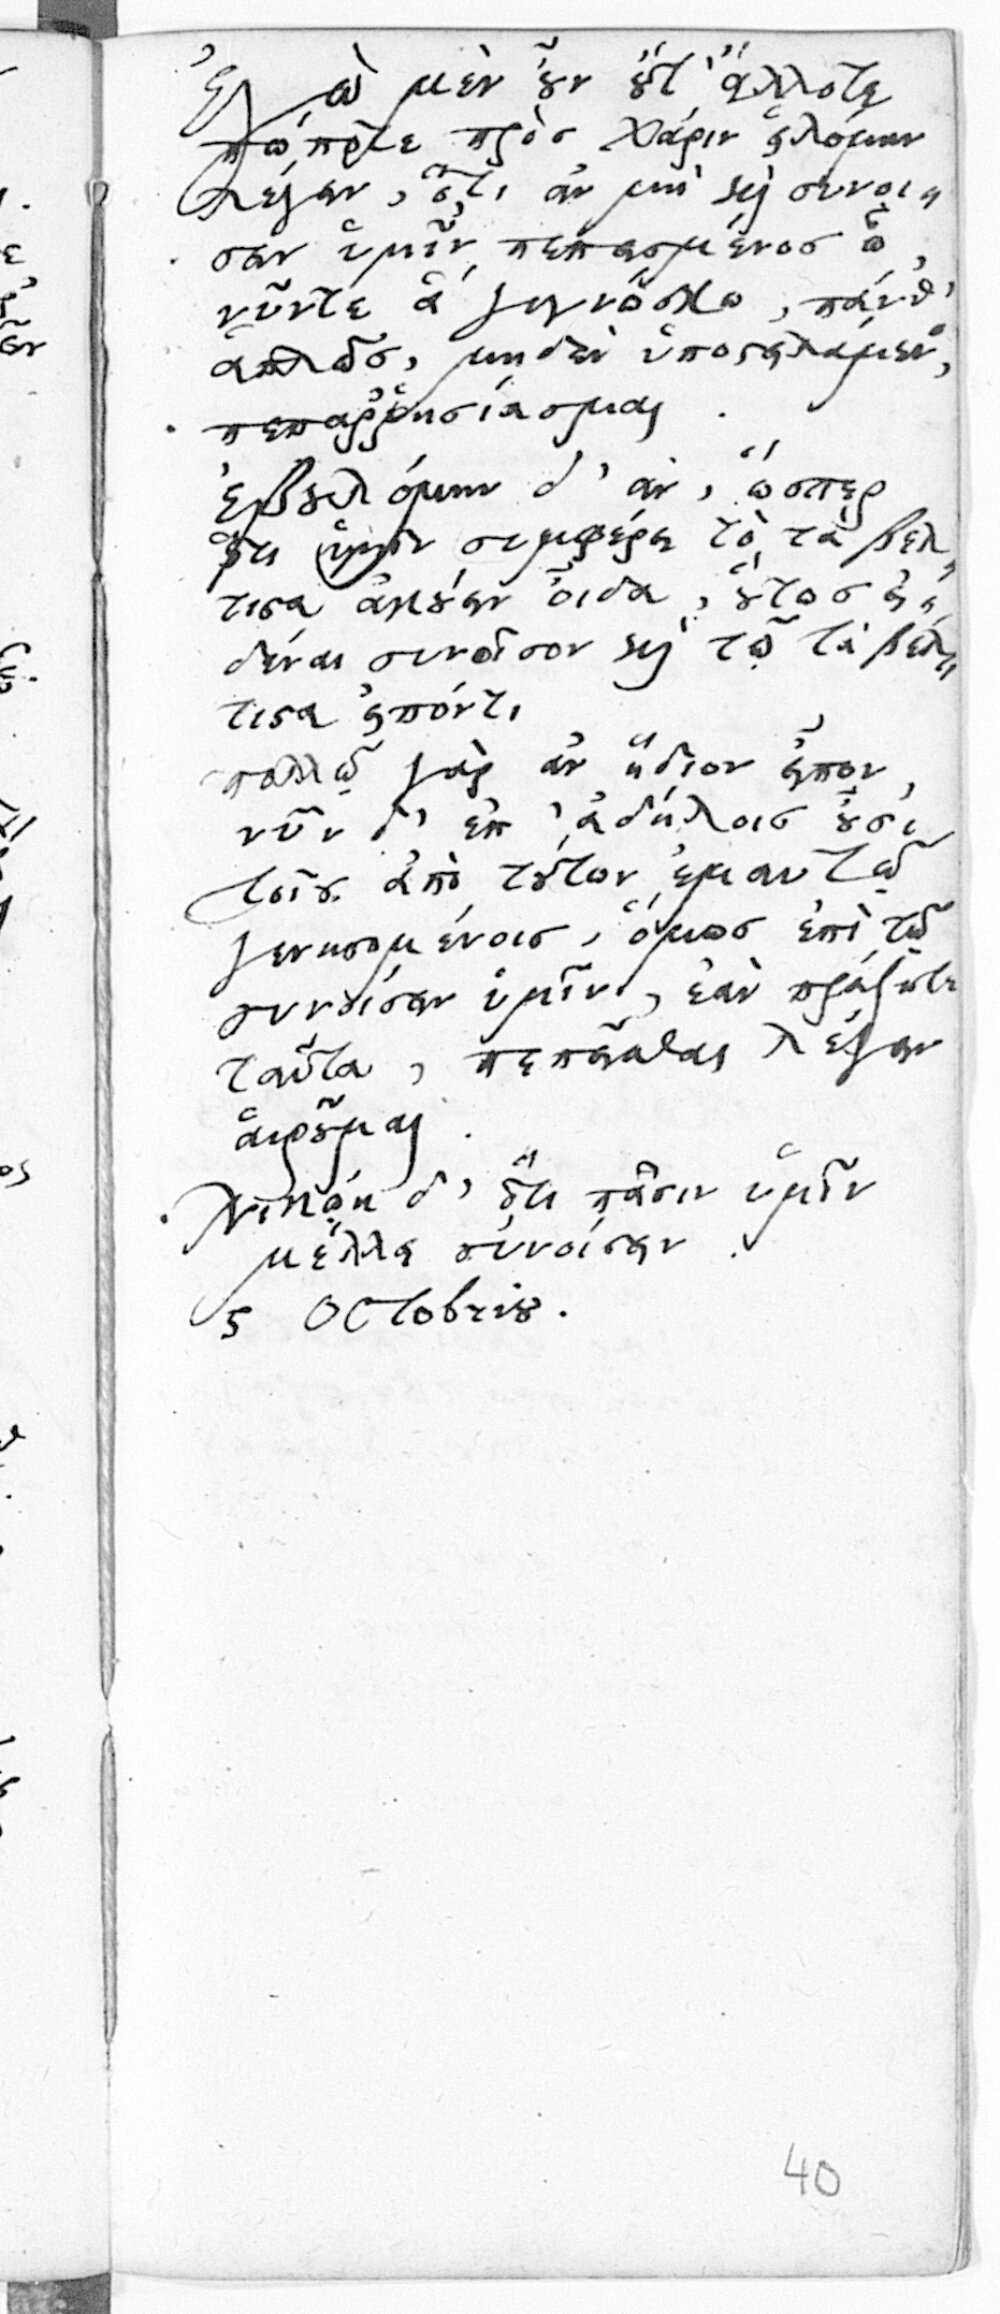 Ἐγὼ μὲν οὖν οὔτ' ἄλλοτε
πώποτε πρὸς χάριν εἱλόμην
λέγειν, ὅ,τι ἂν μὴ καὶ συνοί„
σειν ὑμῖν πεπεισμένος ὦ,
νῦν τε ἃ γιγνώσκω, πάνθ'
ἁπλῶς, μηδὲν ὑποστειλάμεν,
πεπαῤῥησίασμαι.
ἐβουλόμην δ' ἂν, ὥσπερ
ὅτι ὑμῖν συμφέρει τὸ τὰ βέλ„
τιστα ἀκούειν οἶδα, οὕτως εἰ„
δέναι συνοῖσον καὶ τῷ τὰ βέλ„
τιστα εἰπόντι
πολλῷ γὰρ ἂν ἥδιον εἶπον,
νῦν δ' ἐπ' ἀδήλοις οὖσι
τοῖς ἀπὸ τούτων ἐμαυτῷ
γενησομένοις, ὅμως ἐπὶ τῷ
συνοίσειν ὑμῖν, ἐὰν πράξητε
ταῦτα, πεπεῖσθαι λέγειν
αἱροῦμαι.
Νικῴη δ' ὅτι πᾶσιν ὑμῖν
μέλλει συνοίσειν.
5 Octobris.
40